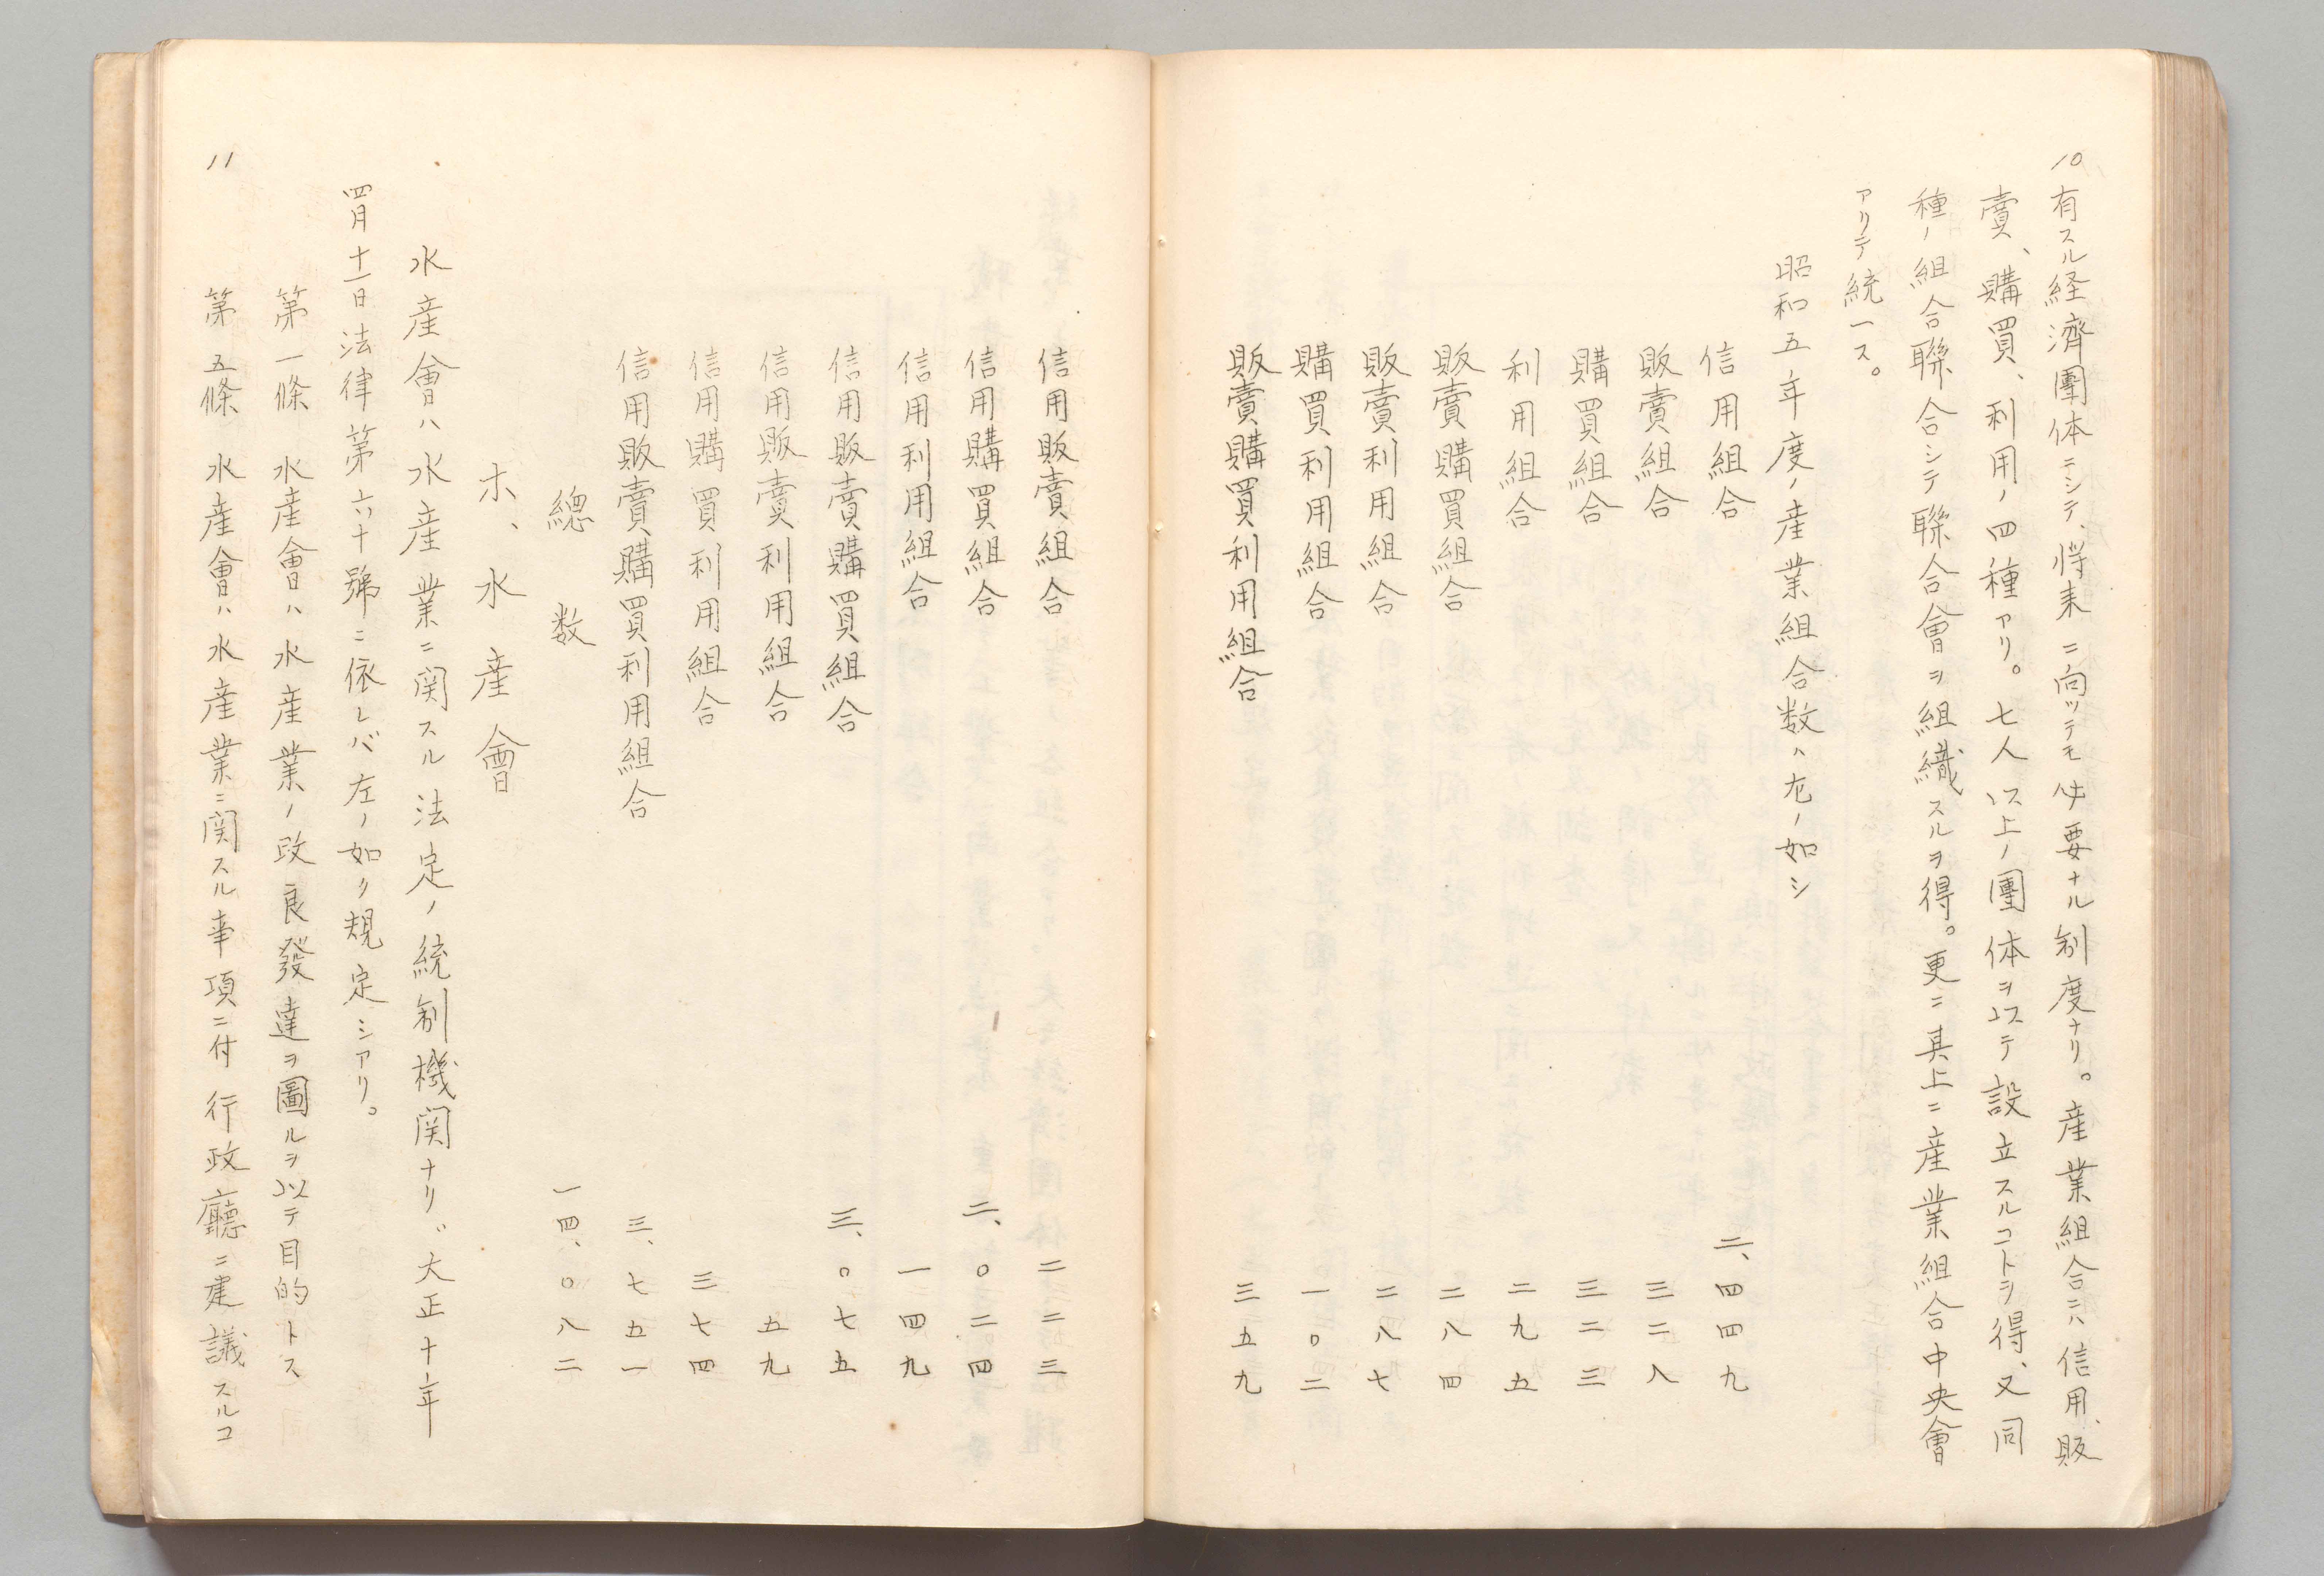 10
有スル経濟團体ニシテ、将来ニ向ツテモ必要ナル制度ナリ。産業組合ニハ信用、販
賣、購買、利用ノ四種アリ。七人以上ノ團体ヲ以テ設立スルコトヲ得、又同
種ノ組合聯合シテ聯合會ヲ組織スルヲ得。更ニ其上ニ産業組合中央會
アリテ統一ス。
昭和五年度ノ産業組合数ハ左ノ如シ
信用組合 二、四四九
販賣組合 三二八
購買組合 三二三
利用組合 二九五
販賣購買組合 二八四
販賣利用組合 二八七
購買利用組合 一〇二
販賣購買利用組合 三五九
信用販賣組合 二二三
信用購買組合 二、〇二四
信用利用組合 一四九
信用販賣購買組合 三、〇七五
信用販賣利用組合 五九
信用購買利用組合 三七四
信用販賣購買利用組合 三、七五一
總数 一四、〇八二
ホ、水産會
水産會ハ水産業ニ関スル法定ノ統制機関ナリ。大正十年
四月十一日法律第六十號ニ依レバ左ノ如ク規定シアリ。
第一條 水産會ハ水産業ノ改良發達ヲ圖ルヲ以テ目的トス
第五條 水産會ハ水産業ニ関スル事項ニ付行政廳ニ建議スルコ
11